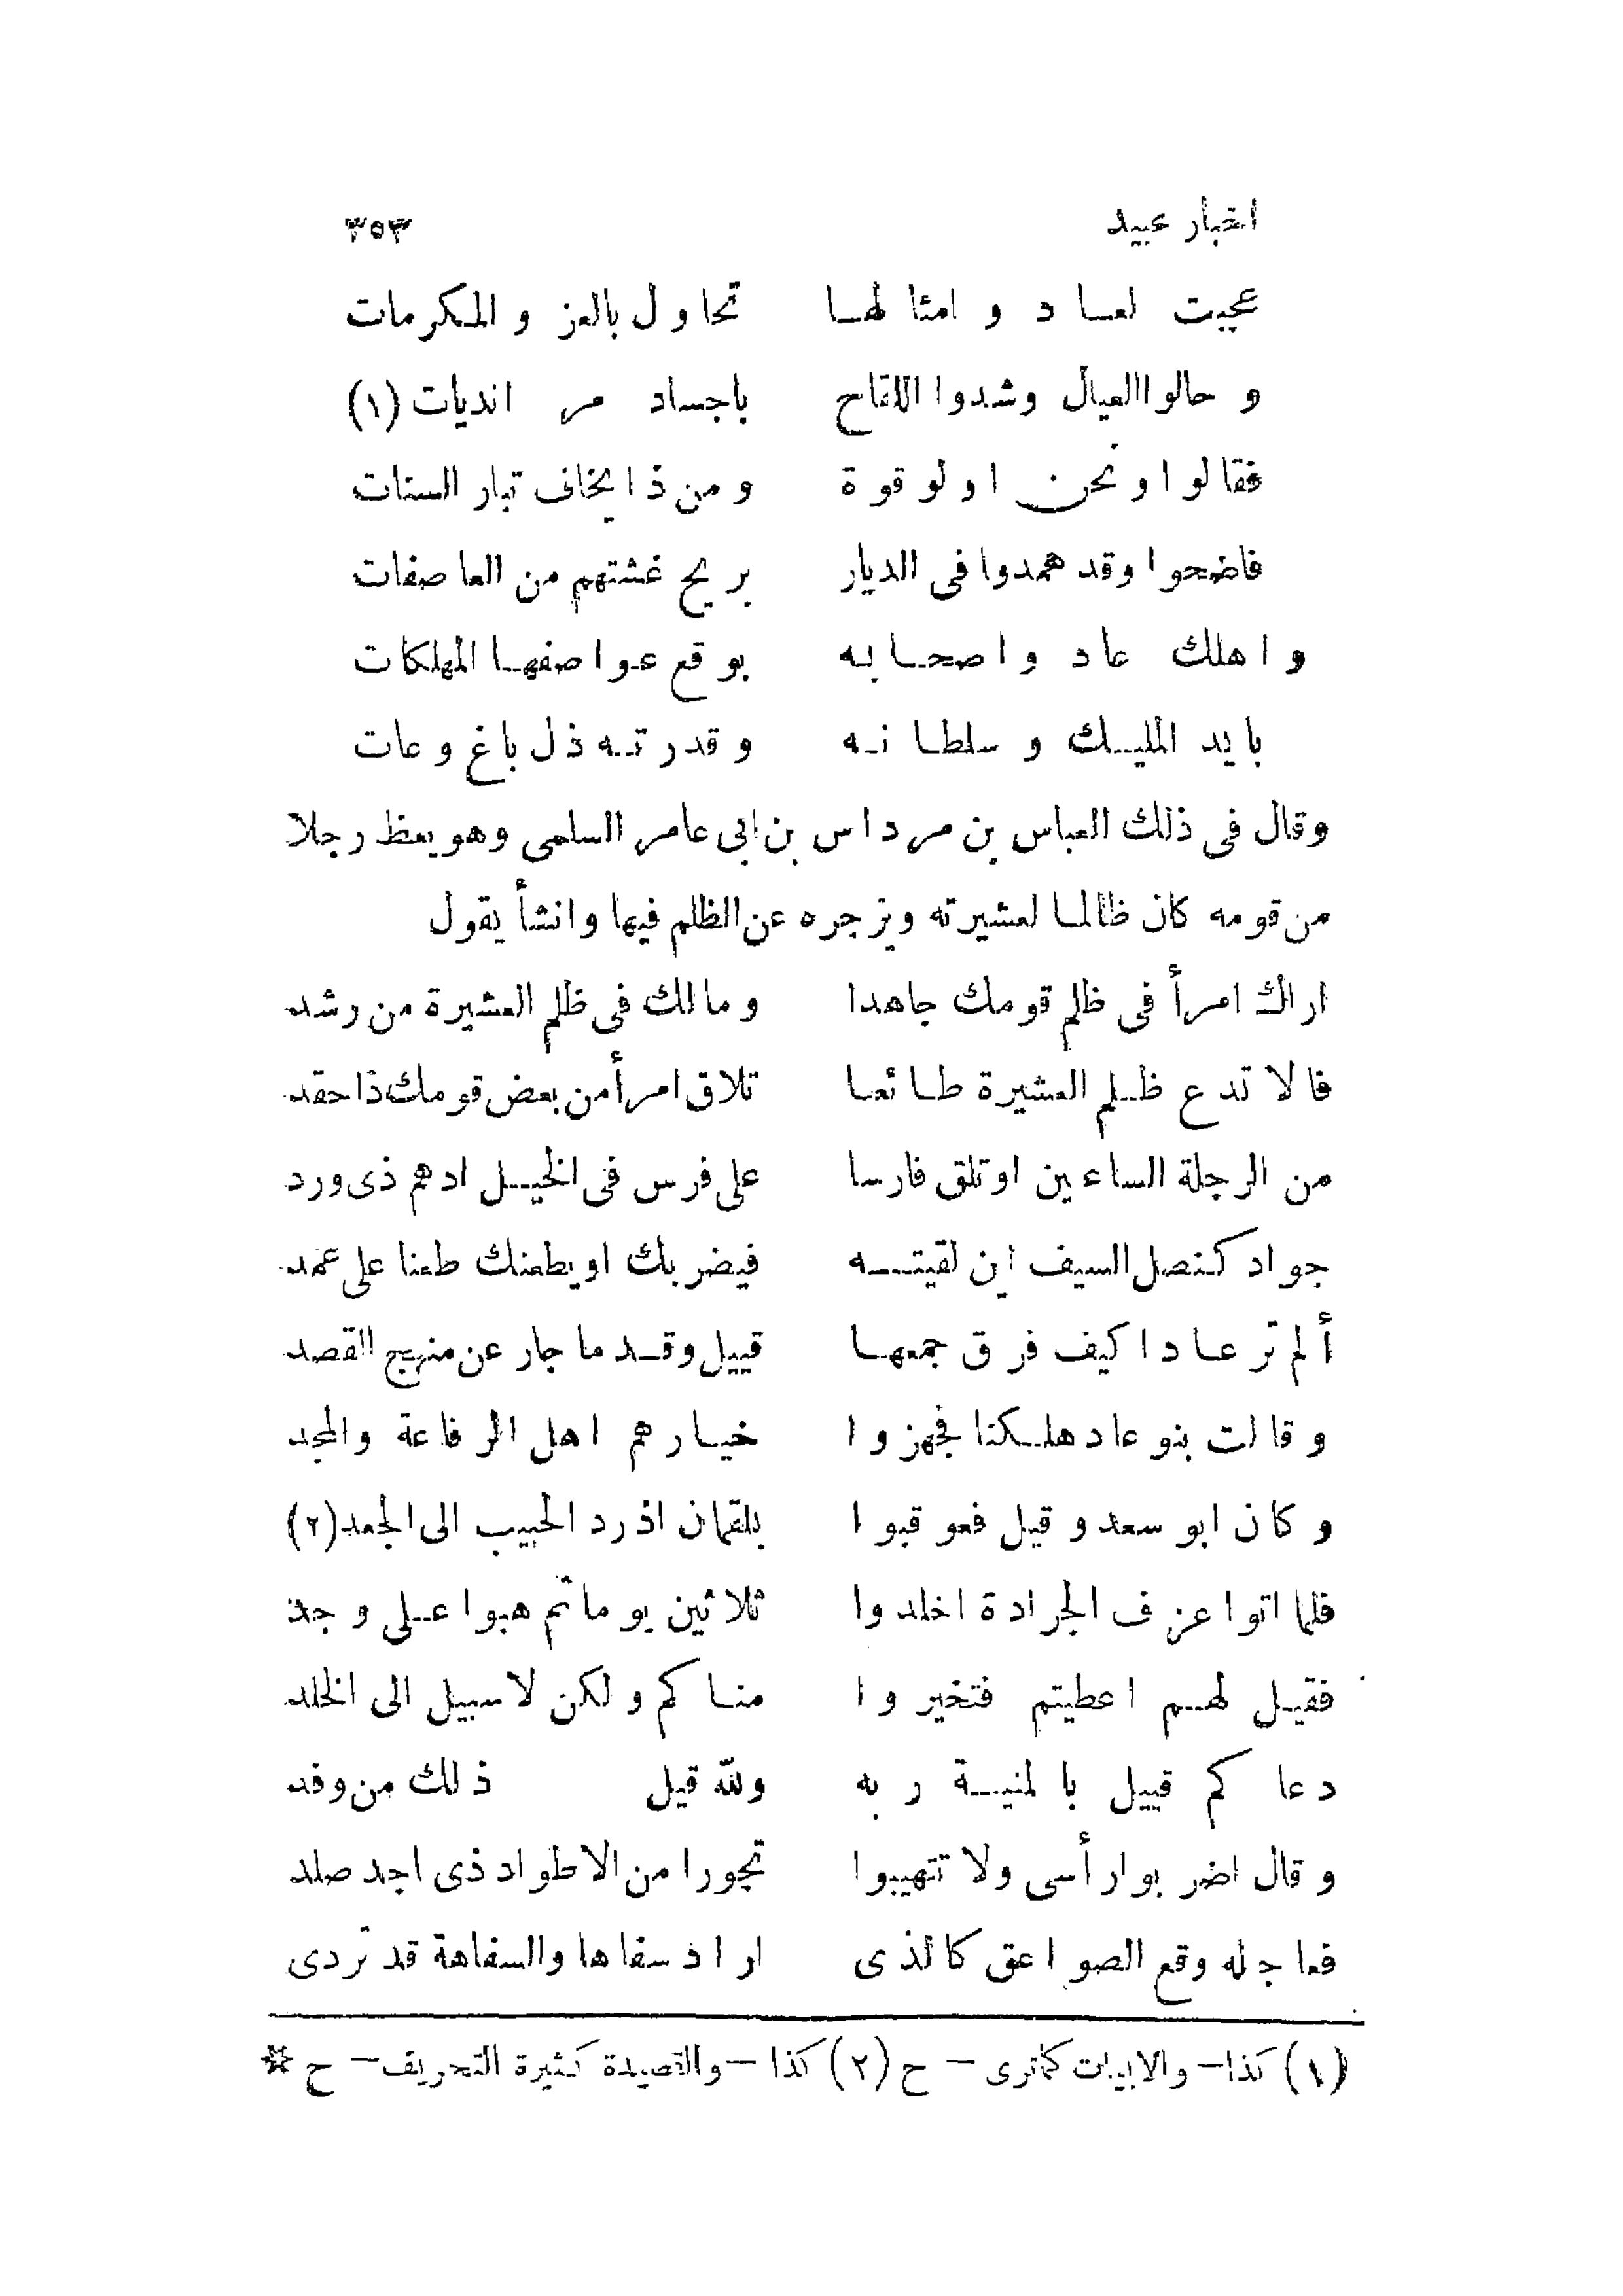 اخبار عبيد ٣٥٣
عجبت لعاد وامثالها تحاول بالعز والمكرمات
وحالوا العيال وشدوا اللقاح باجساد مر انديات (١)
فقالوا ونحن اولو قوة ومن ذا يخاف تبار السنات
فاضحوا وقد همدوا فى الديار بريح غشتهم من العاصفات
واهلك عاد واصحابه بوقع عواصفها المهلكات
بايد المليك وسلطانه وقدرته ذل باغ وعات
وقال فى ذلك العباس بن مرداس بن ابى عامر السلمى وهو يعظ رجلا
من قومه كان ظالما لعشيرته ويزجره عن الظلم فيها وانشأ يقول
اراك امرأ فى ظلم قومك جاهدا ومالك فى ظلم العشيرة من رشد
فالا تدع ظلم العشيرة طائعا تلاق امرأ من بعض قومك ذا حقد
من الرجلة الساعين اوتلق فارسا على فرس فى الخيل ادهم ذى ورد
جواد كنصل السيف اين لقيته فيضربك او يطعنك طعنا على عمد
ألم تر عادا كيف فرق جمعها قييل وقد ما جار عن منهج القصد
وقالت بنو عاد هلكنا فجهزوا خيارهم اهل الرفاعة والمجد
وكان ابو سعد وقيل فعوقبوا بلقمان اذ رد الحبيب الى الجعد (٢)
فلما اتوا عزف الجرادة اخلدوا ثلاثين يوما ثم هبوا على وجد
فقيل لهم اعطيتم فتخيروا مناكم ولكن لا سبيل الى الخلد
دعاكم قييل بالمنية ربه ولله قيل ذلك من وفد
وقال اضربوا رأسى ولا تتهيبوا تجورا من الاطواد ذى اجد صلد
فعاجله وقع الصواعق كالذى اراد سفاها والسفاهة قد تردى
(١) كذا – والابيات كماترى – ح (٢) كذا – والقصيدة كثيرة التحريف – ح *